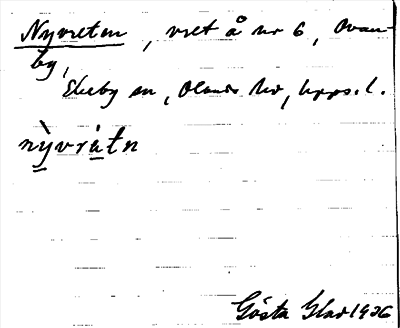 Nyvreten, vret å nr 6, Ovan-
by,
Ekeby sn, Olands hd, Upps. l.
nỳvrètn
Gösta Glad 1926